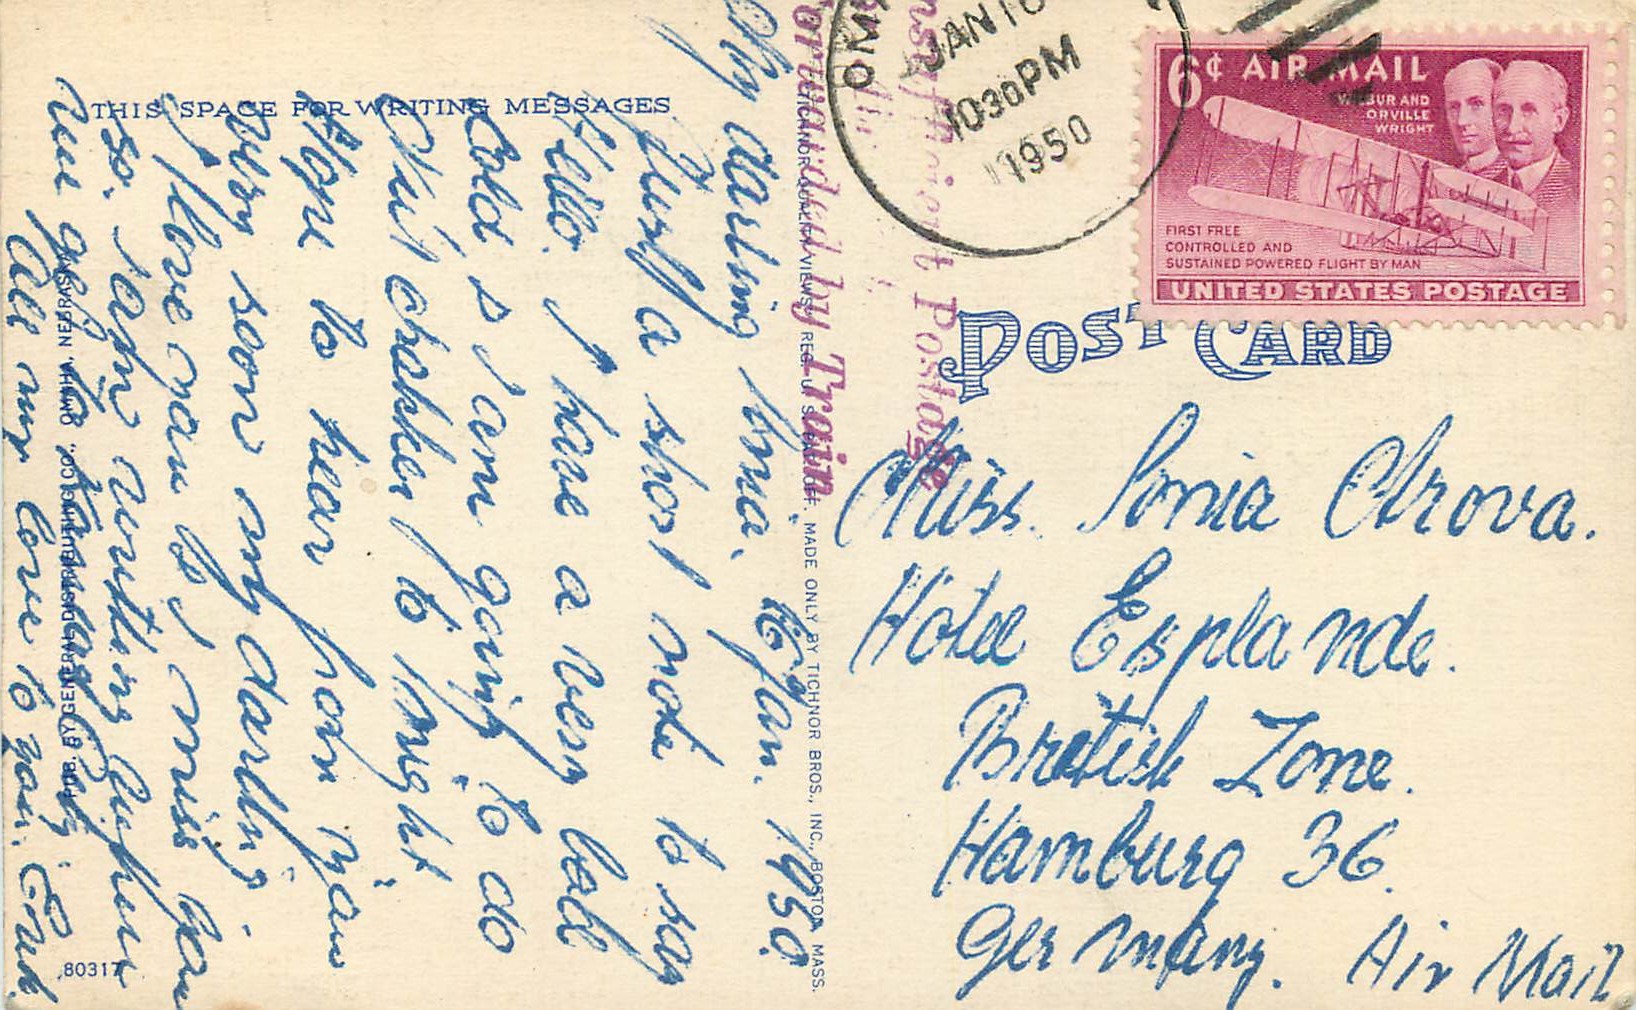 THIS SPACE FOR WRITING MESSAGES
My darling Sonia. 16 Jan. 1950.
Just a short note to say
Hello. I have a very bad
Cold, & I am going to do
Nut cracker to night
Hope to hear from you
very soon my darling.
I love you & miss you
so.
All my love to you. Erik.
80317
PUB. BY GENERAL DISTRIBUTING CO., OMAHA, NEBRASKA
"TICHNOR QUALITY VIEWS," REG. U. S. PAT. OFF. MADE ONLY BY TICHNOR BROS., INC., BOSTON, MASS.
Forwarded by Train
Insufficient Postage
JAN 16
1030 PM
1950
6¢ AIR MAIL
WILBUR AND
ORVILLE
WRIGHT
FIRST FREE
CONTROLLED AND
SUSTAINED POWERED FLIGHT BY MAN
UNITED STATES POSTAGE
POST CARD
Miss. Sonia Arova.
Hotel Esplande.
British Zone.
Hamburg 36.
Germany. Air Mail